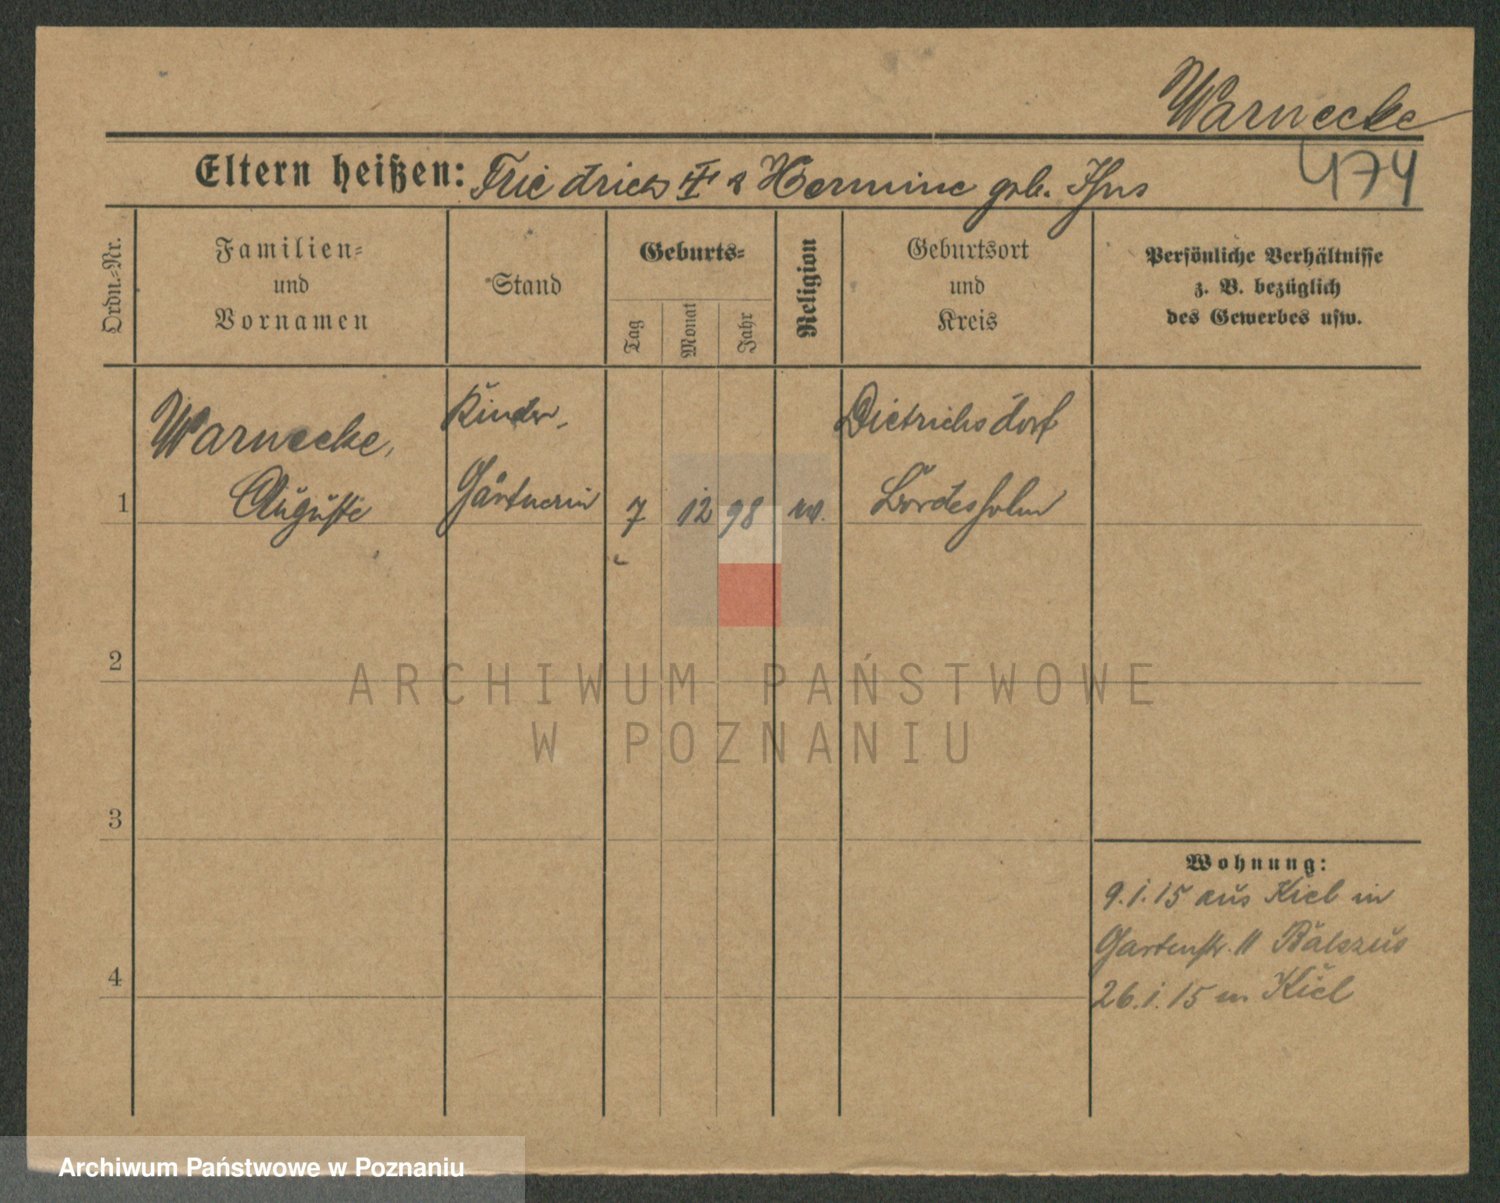 Warnecke
474
Eltern heißen: Friedrich u Hermine geb. Ihns
Ordn.-Nr.
Familien-
und
Vornamen
Stand
Geburts-
Tag
Monat
Jahr
Religion
Geburtsort
und
Kreis
Persönliche Verhältnisse
z. B. bezüglich
des Gewerbes usw.
Warnecke,
Auguste
Kinder-
Gärtnerin
1
7
12
98
Dietrichsdorf
Bordesholm
2
3
4
ARCHIWUM PAŃSTWOWE
W POZNANIU
Wohnung:
9.1.15 aus Kiel in
Gartenstr. 11
26.1.15 n. Kiel
Archiwum Państwowe w Poznaniu